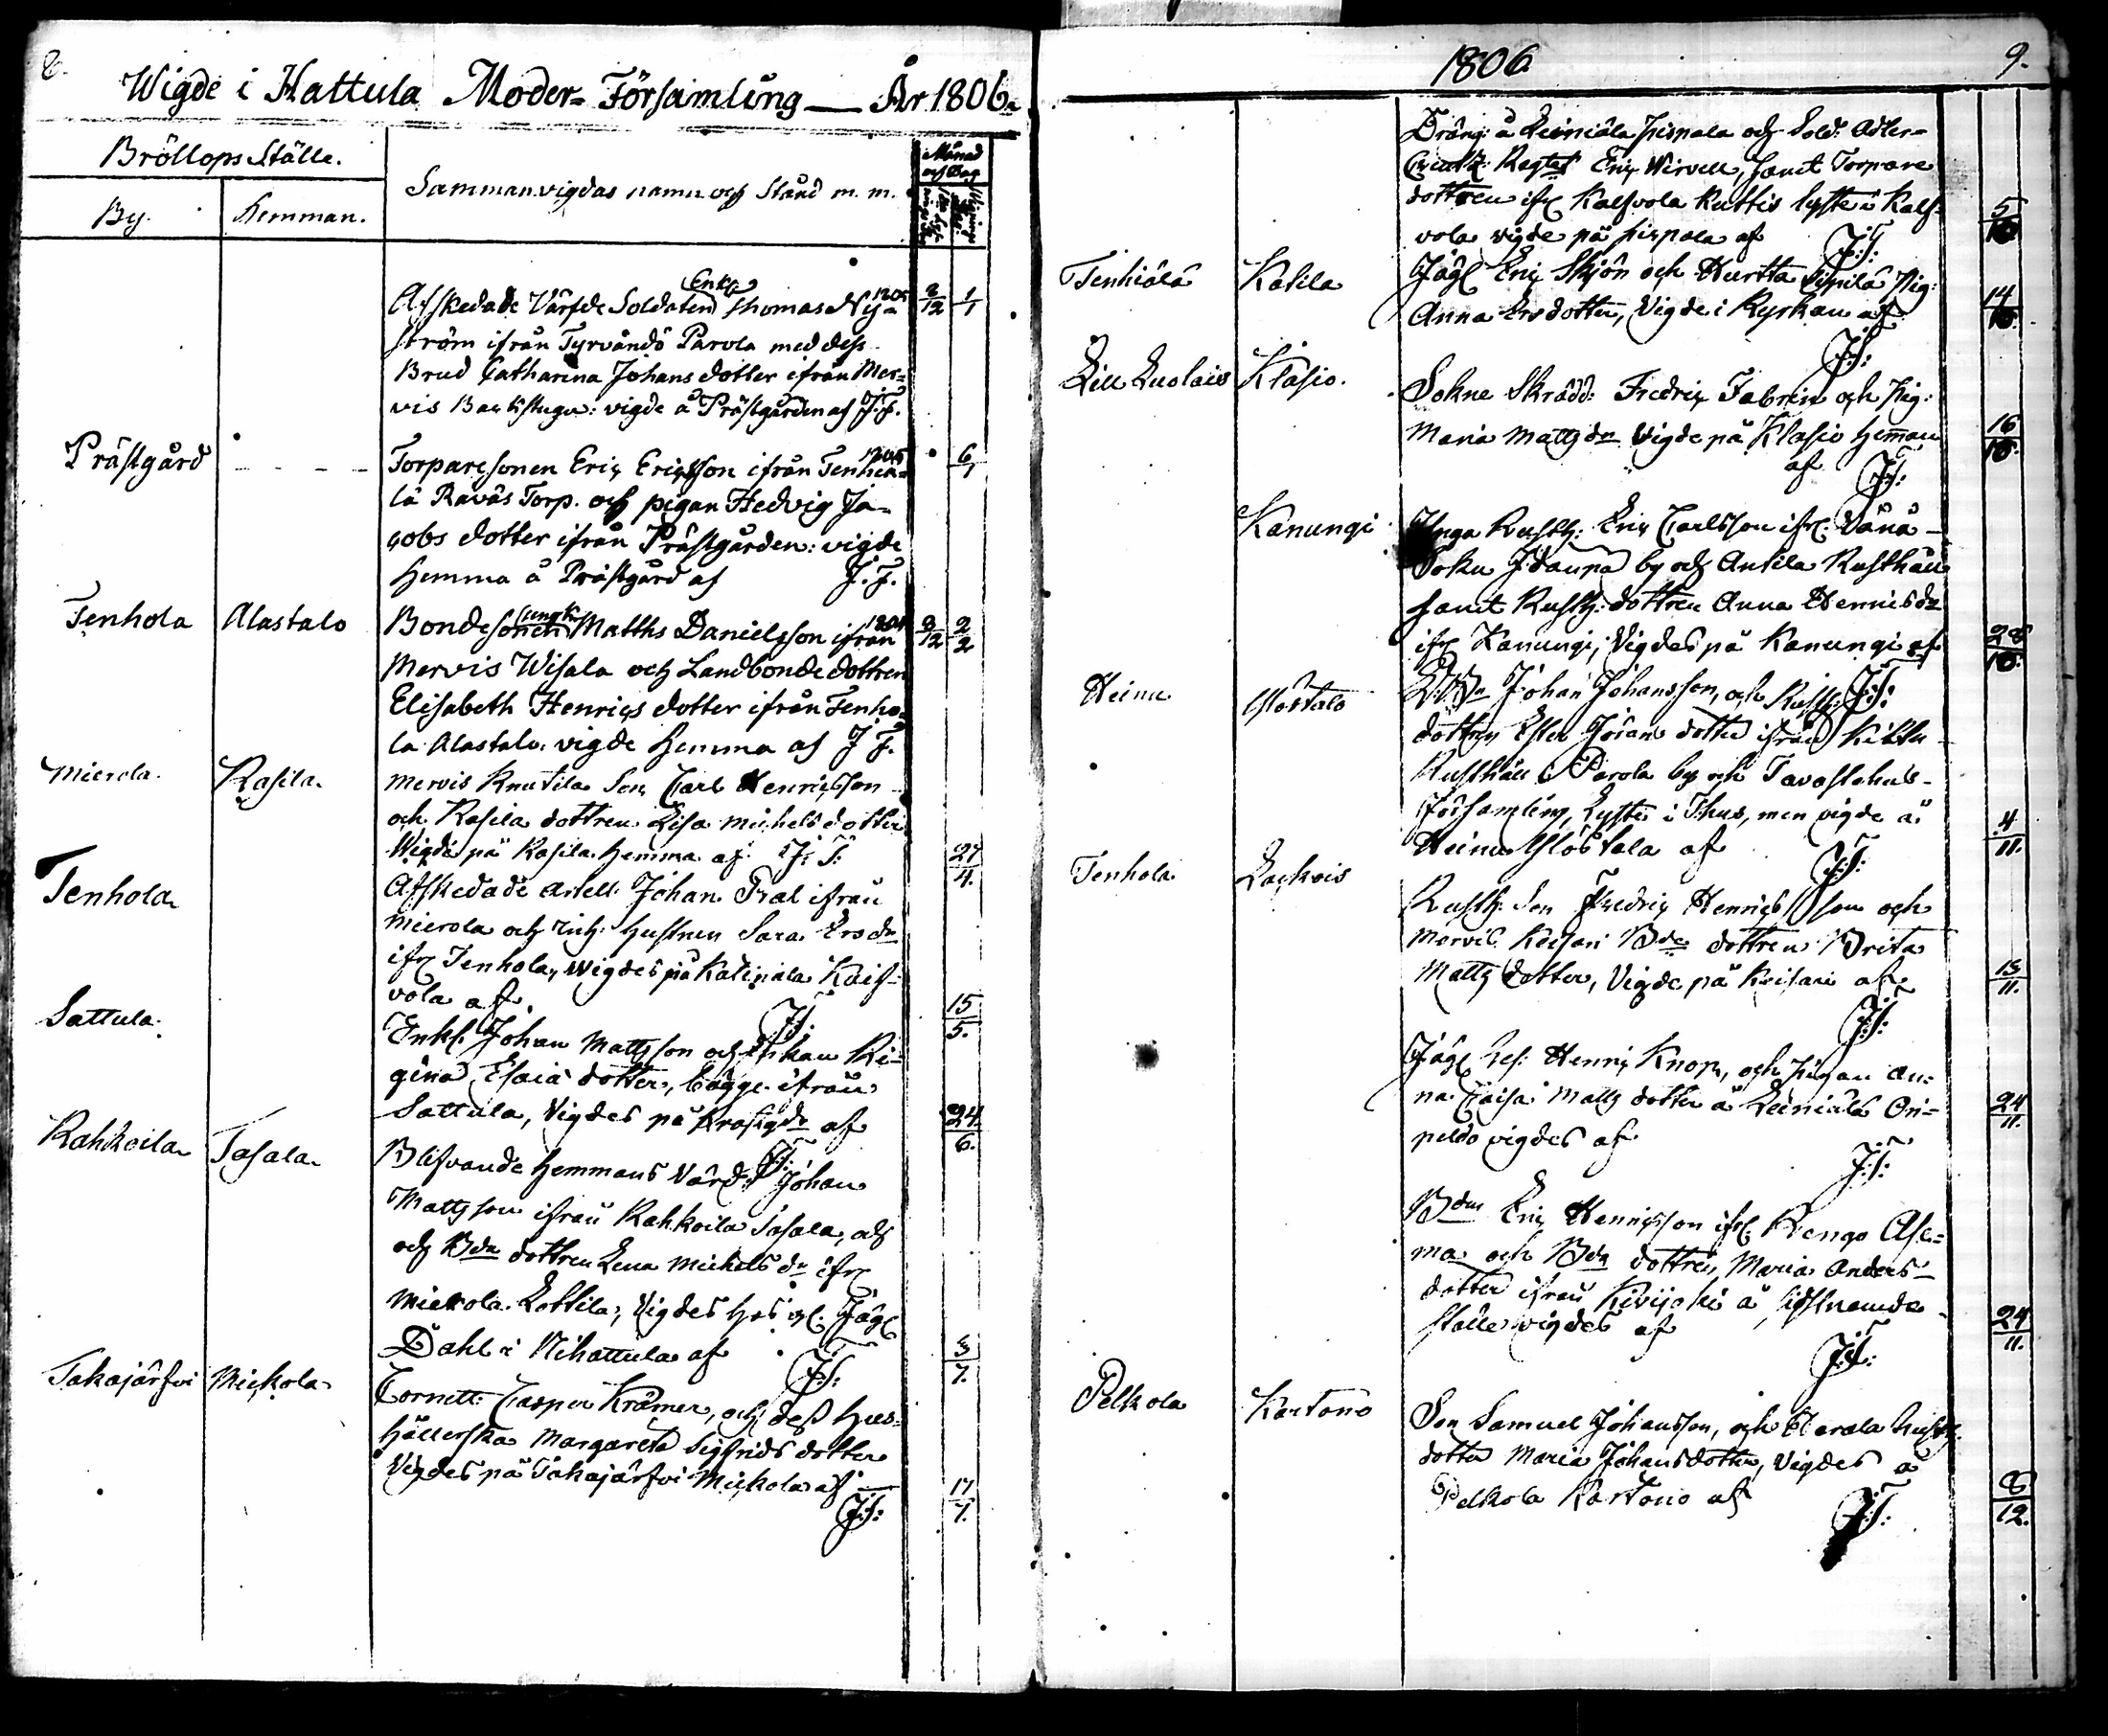 8.
Wigde i Hattula Moder-Församling — År 1806.
Bröllops Ställe.
By. Hemman.
Sammanvigdas namn och Stånd m. m.
Månad och Dag
Enkl.
Afskedade Värfde Soldaten Thomas Ny- 1805 8/12 1/1
ström ifrån Tyrvändö Parola med dess
Brud Catharina Johans dotter ifrån Mer-
vis Backstugu: vigde å Prästgården af J.F.
Prästgård - - - - Torparesonen Eric Ericsson ifrån Tenhiä- 1805 6/1
lä Raväs Torp. och pigan Hedvig Ja-
cobs dotter ifrån Prästgården: vigde
hemma å Prästgård af J. F.
Tenhola Alastalo Bondesonen ungk. Matths Danielsson ifrån 8/12 2/2
Mervis Wisala och Landbonde dottren
Elisabeth Henrics dotter ifrån Tenho-
la Alastalo. vigde hemma af J F.
Mierola Rasila. Mervis Knutila Son Carl Henricsson
och Rasila dottren Lisa Michels dotter
Wigde på Rasila hemma af J. F. 27/4.
Tenhola Afskedade Artell. Johan Pral ifrån
Mierola och hustrun Sara Ersdr
ifr. Tenhola, wigdes på Katinala
vola af J.F. 15/5.
Sattula. Enkl. Johan Mattsson och Enkan Re-
gina Esaiæ dotter, bägge ifrån
Sattula, Vigdes på Prästgdn af 24/6.
J.F.
Rahkoila Tasala Blifvande hemmans Värd: Johan
Mattsson ifrån Rahkoila Tasala, och
och Bde dottren Lena Michels dr ifr.
Mierola Lottila, Vigdes hos
Dahl i Nihattula af J.F. 3/7.
Takajärfvi Mickola Cornett: Casper Krämer, och dess Hus-
hållerska Margareta Sigfrids dotter
Vigdes på Takajärfvi Mickola af — 17/7.
J.F:
1806 9.
Dräng: å Leiniälä Pispala och Sold: Adler-
Creutz: Regtet Eric Wirvell, samt Torpare
dottren ifr. Kalfvola Ruttis lyste i Kalf-
vola vigde på pispala af J.F: 5/10.
Tenhiälä Katila Jäg. Eric Skjön och Hurtta Sippilä Pig:
Anna Ersdotter, Vigde i Kyrkan af 14/10.
J.F:
Lill Luolais Klasio. Sokne Skrädd: Fredric Fabrin och Pig:
Maria Matts dr Vigde på Klasio hemman 16/10.
af J.F:
Kanungi Unga Rusth: Eric Carlsson ifr. Vånå-
Sokn Idanpä by och Antila Rusthåll
samt Rusth: dottren Anna Hennis dr
ifr. Kanungi, Vigdes på Kanungi af 28/10.
Heinu Ylöstalo Johan Johansson, och Rusth. J.F:
dottren Ester Görans dotter ifrån
Rusthåll i Parola by och Tavastehus-
Församling, Lyste i Thus, men vigde å
Heinu Ylöstala af J.F: 4/11.
Tenhola Lackois Rusth: Son Fredric Henrics Son och
Mervis Keisari Bde dottren Brita
Matts dotter, Vigde på Keisari af 15/11.
J.F:
Jäg. Res: Henric Knop, och Pigan An-
na Caisa Matts dotter å Leiniälä On-
peldo vigdes af J.F: 24/11.
Bden Eric Henricsson ifr. Rengo Ase-
ma och Bde dottren Maria Anders-
dotter ifrån Kivijoki å sidstnämde
Ställe vigdes af J.F: 24/11.
Pelkola Kartano Son Samuel Johansson, och Harala Rusth.
dotter Maria Johansdotter, Vigdes å
Pelkola Kartano af J.F: 8/12.